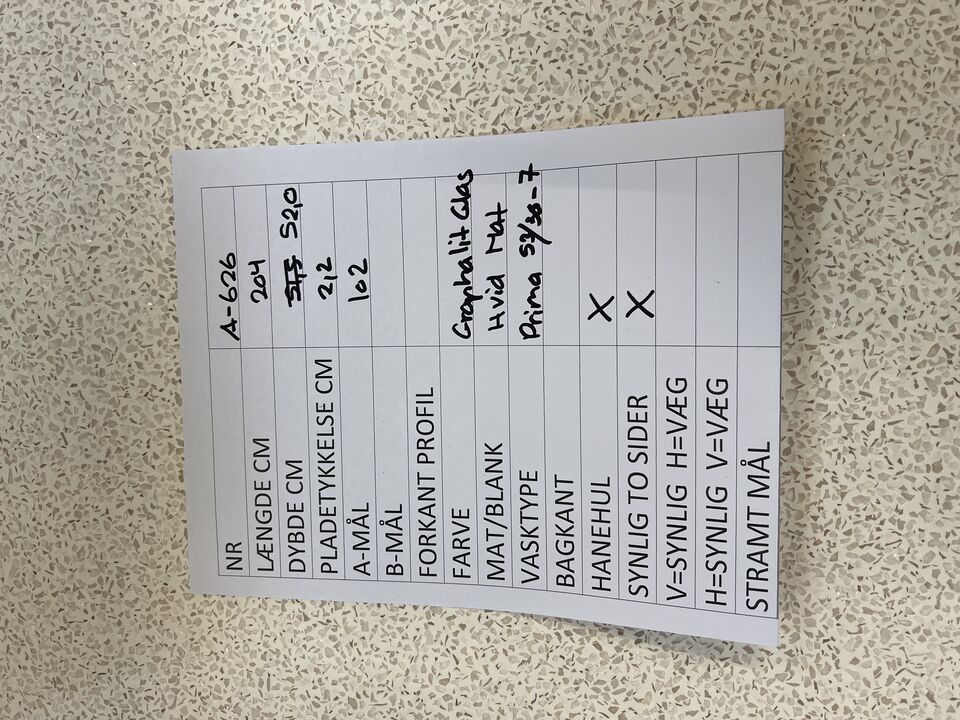 NR A-626
LÆNGDE CM 204
DYBDE CM 51,5 52,0
PLADETYKKELSE CM 2,2
A-MÅL 102
B-MÅL
FORKANT PROFIL
FARVE Graphalit Glas
MAT/BLANK Hvid Mat
VASKTYPE Prima 53/38-7
BAGKANT
HANEHUL X
SYNLIG TO SIDER X
V=SYNLIG H=VÆG
H=SYNLIG V=VÆG
STRAMT MÅL